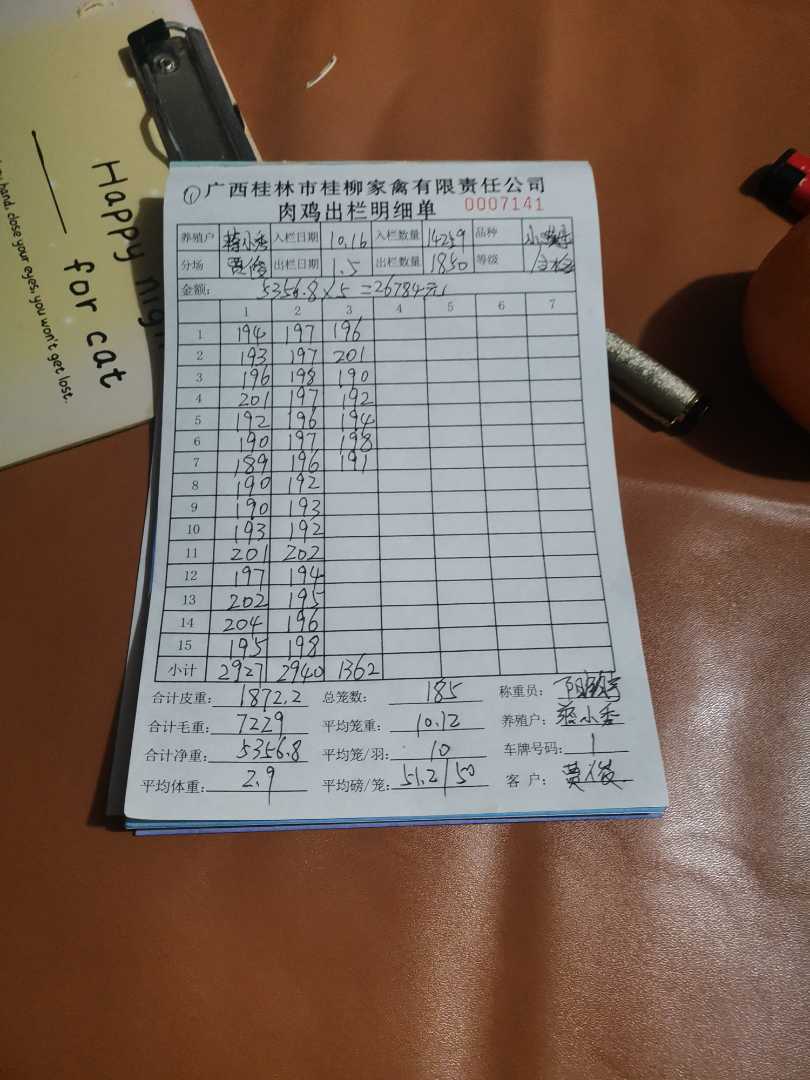 Happy nigh
for cat
hand, close your eyes, you won't get lost.
① 广西桂林市桂柳家禽有限责任公司
肉鸡出栏明细单 0007141
养殖户 蒋小秀 入栏日期 10.16 入栏数量 14259 品种
分场 贾俊 出栏日期 1.5 出栏数量 1850 等级
金额: 5356.8×5=26784元
1 2 3 4 5 6 7
1 194 197 196
2 193 197 201
3 196 198 190
4 201 197 192
5 192 196 194
6 190 197 198
7 189 196 191
8 190 192
9 190 193
10 193 192
11 201 202
12 197 194
13 202 195
14 204 196
15 195 198
小计 2927 2940 1362
合计皮重: 1872.2 总笼数: 185 称重员:
合计毛重: 7229 平均笼重: 10.12 养殖户: 蒋小秀
合计净重: 5356.8 平均笼/羽: 10 车牌号码: 1
平均体重: 2.9 平均磅/笼: 51.2/50 客户: 贾俊